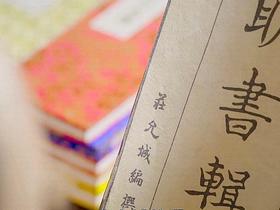 明書輯
莊允城編撰